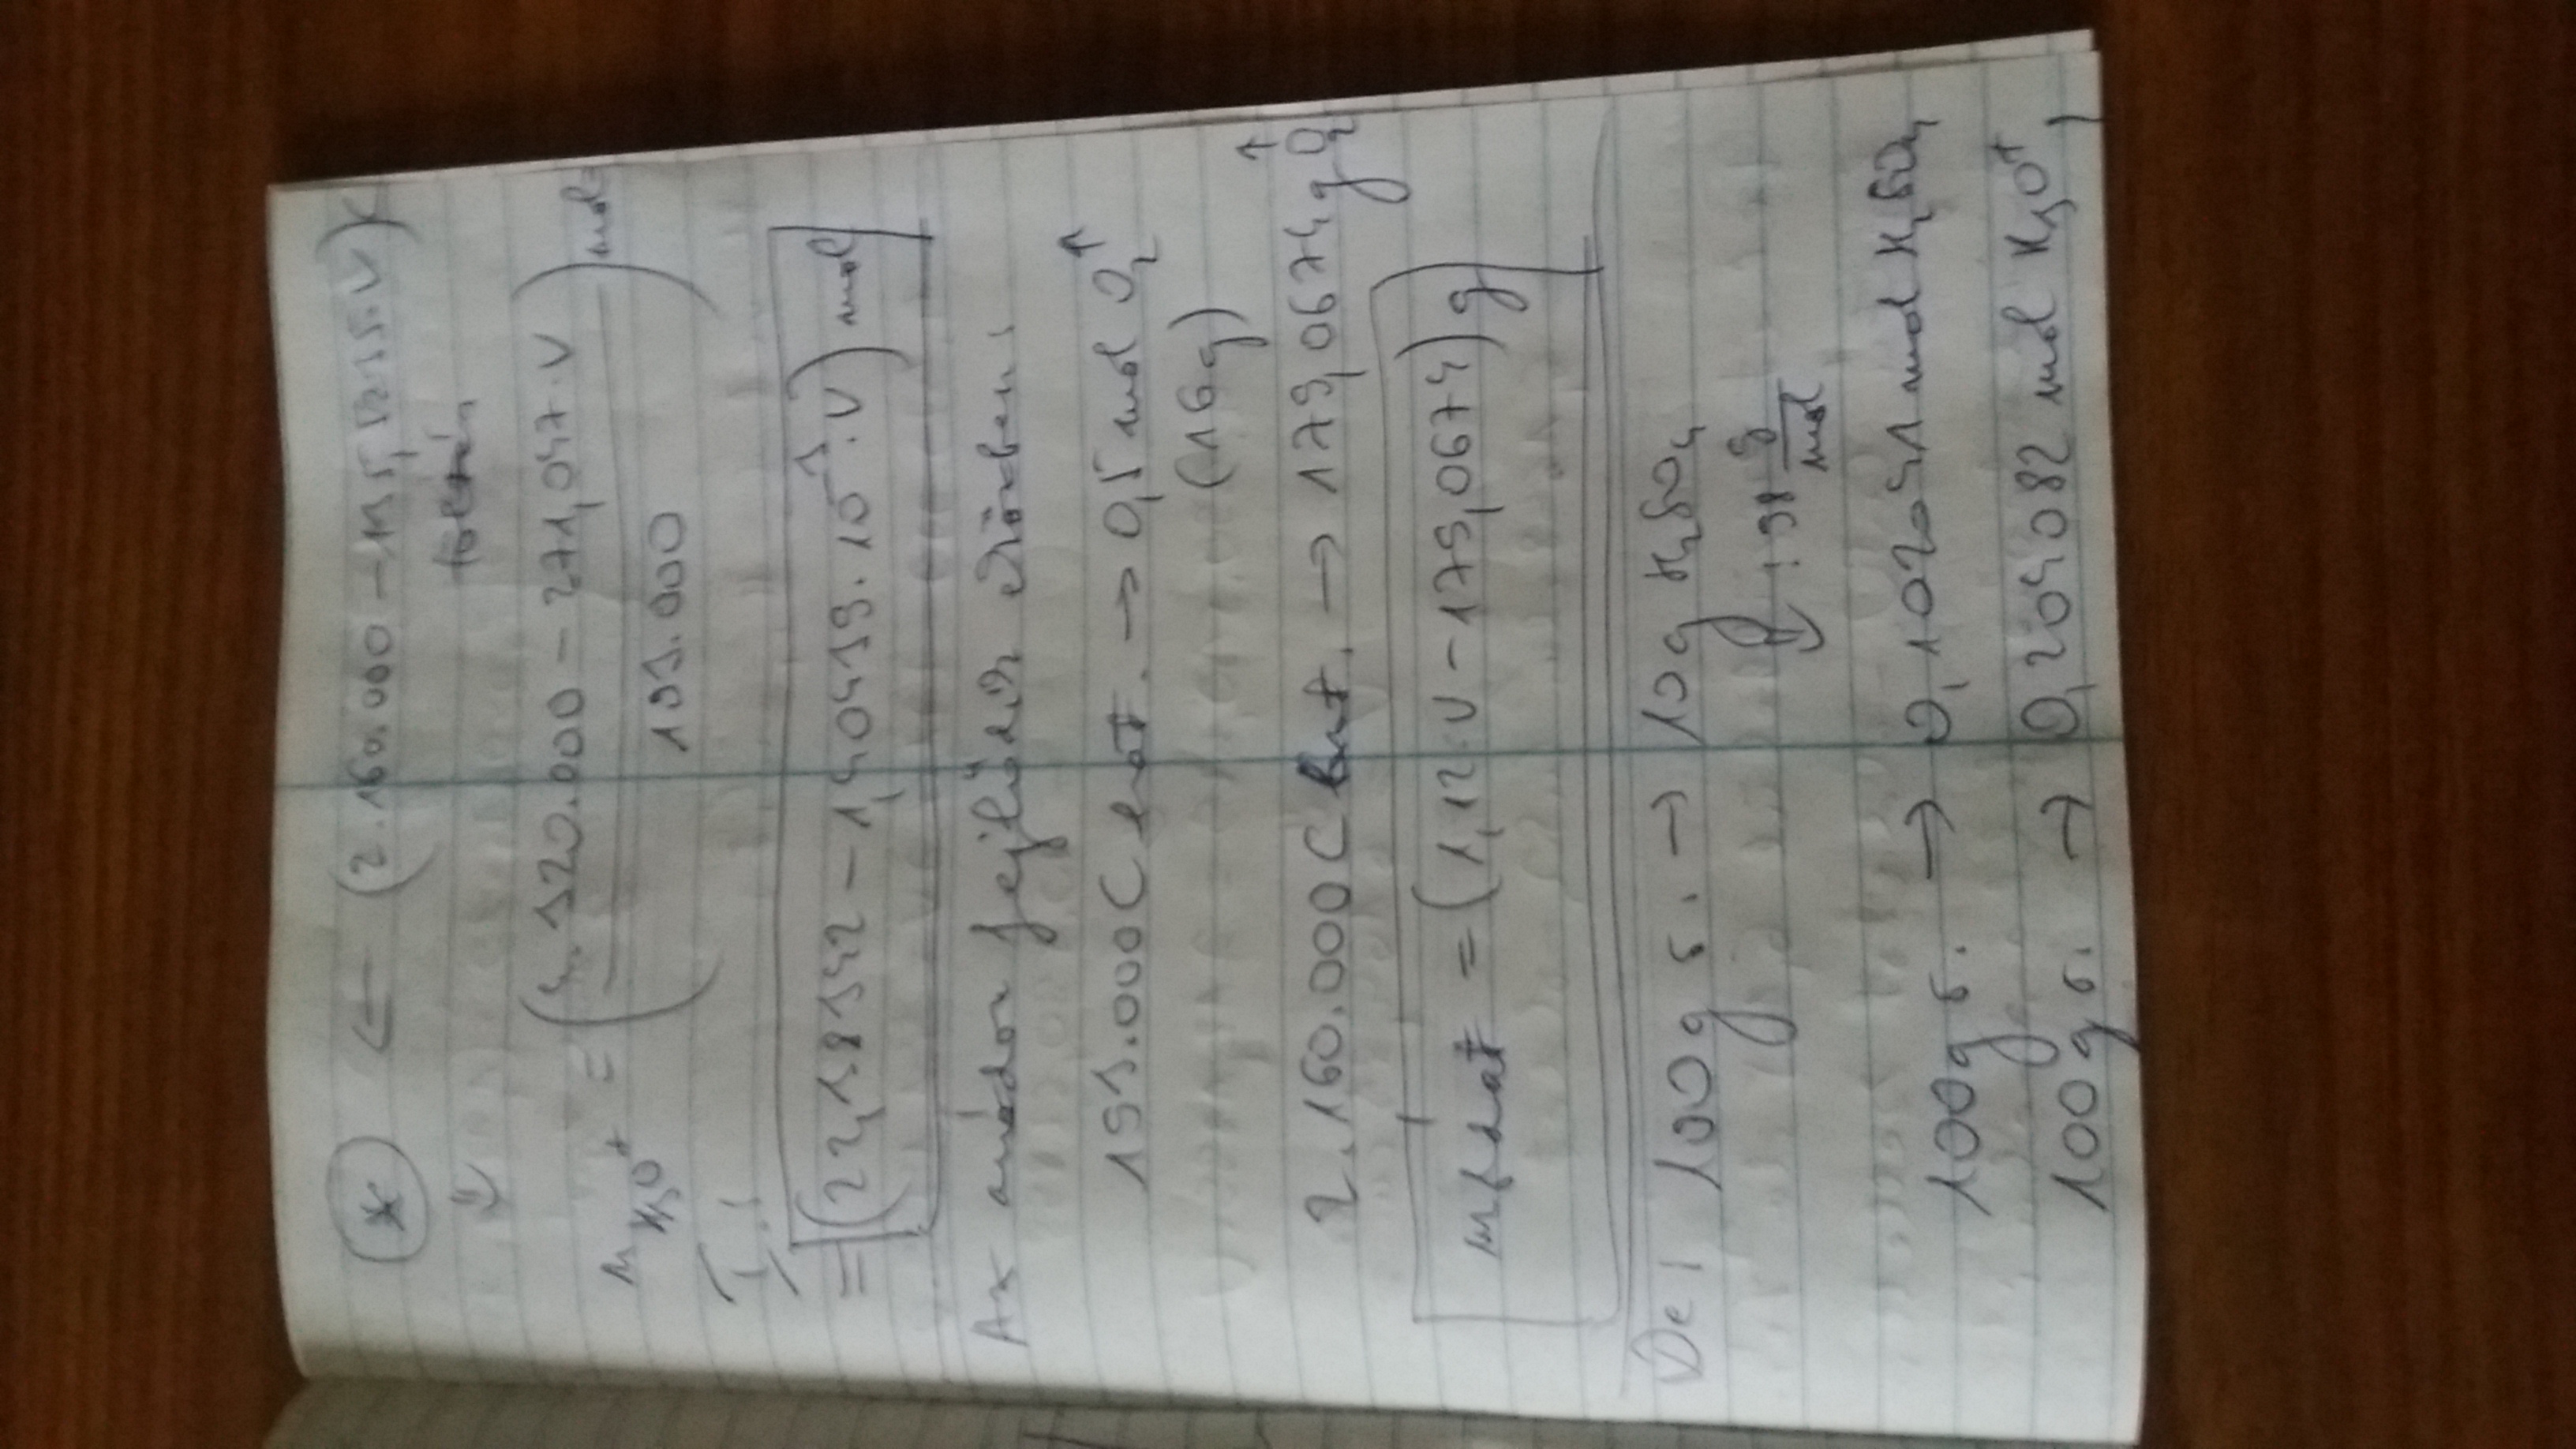 (*) ⇐ (2.160.000 - 135,5235·V) C
⇓ töltés
n H3O+ = (4.320.000 - 271,047·V / 193.000) mol =
= (22,38342 - 1,40439·10⁻³·V) mol
Az anódon fejlődik eközben:
193.000 C hat. → 0,5 mol O2↑
(16 g)
2.160.000 C hat. → 179,0674 g O2↑
m foldat = (1,12·V - 179,0674) g
De: 100 g o. → 10 g H2SO4
↓ : 98 g/mol
100 g o. → 0,102041 mol H2SO4
100 g o. → 0,204082 mol H3O+,